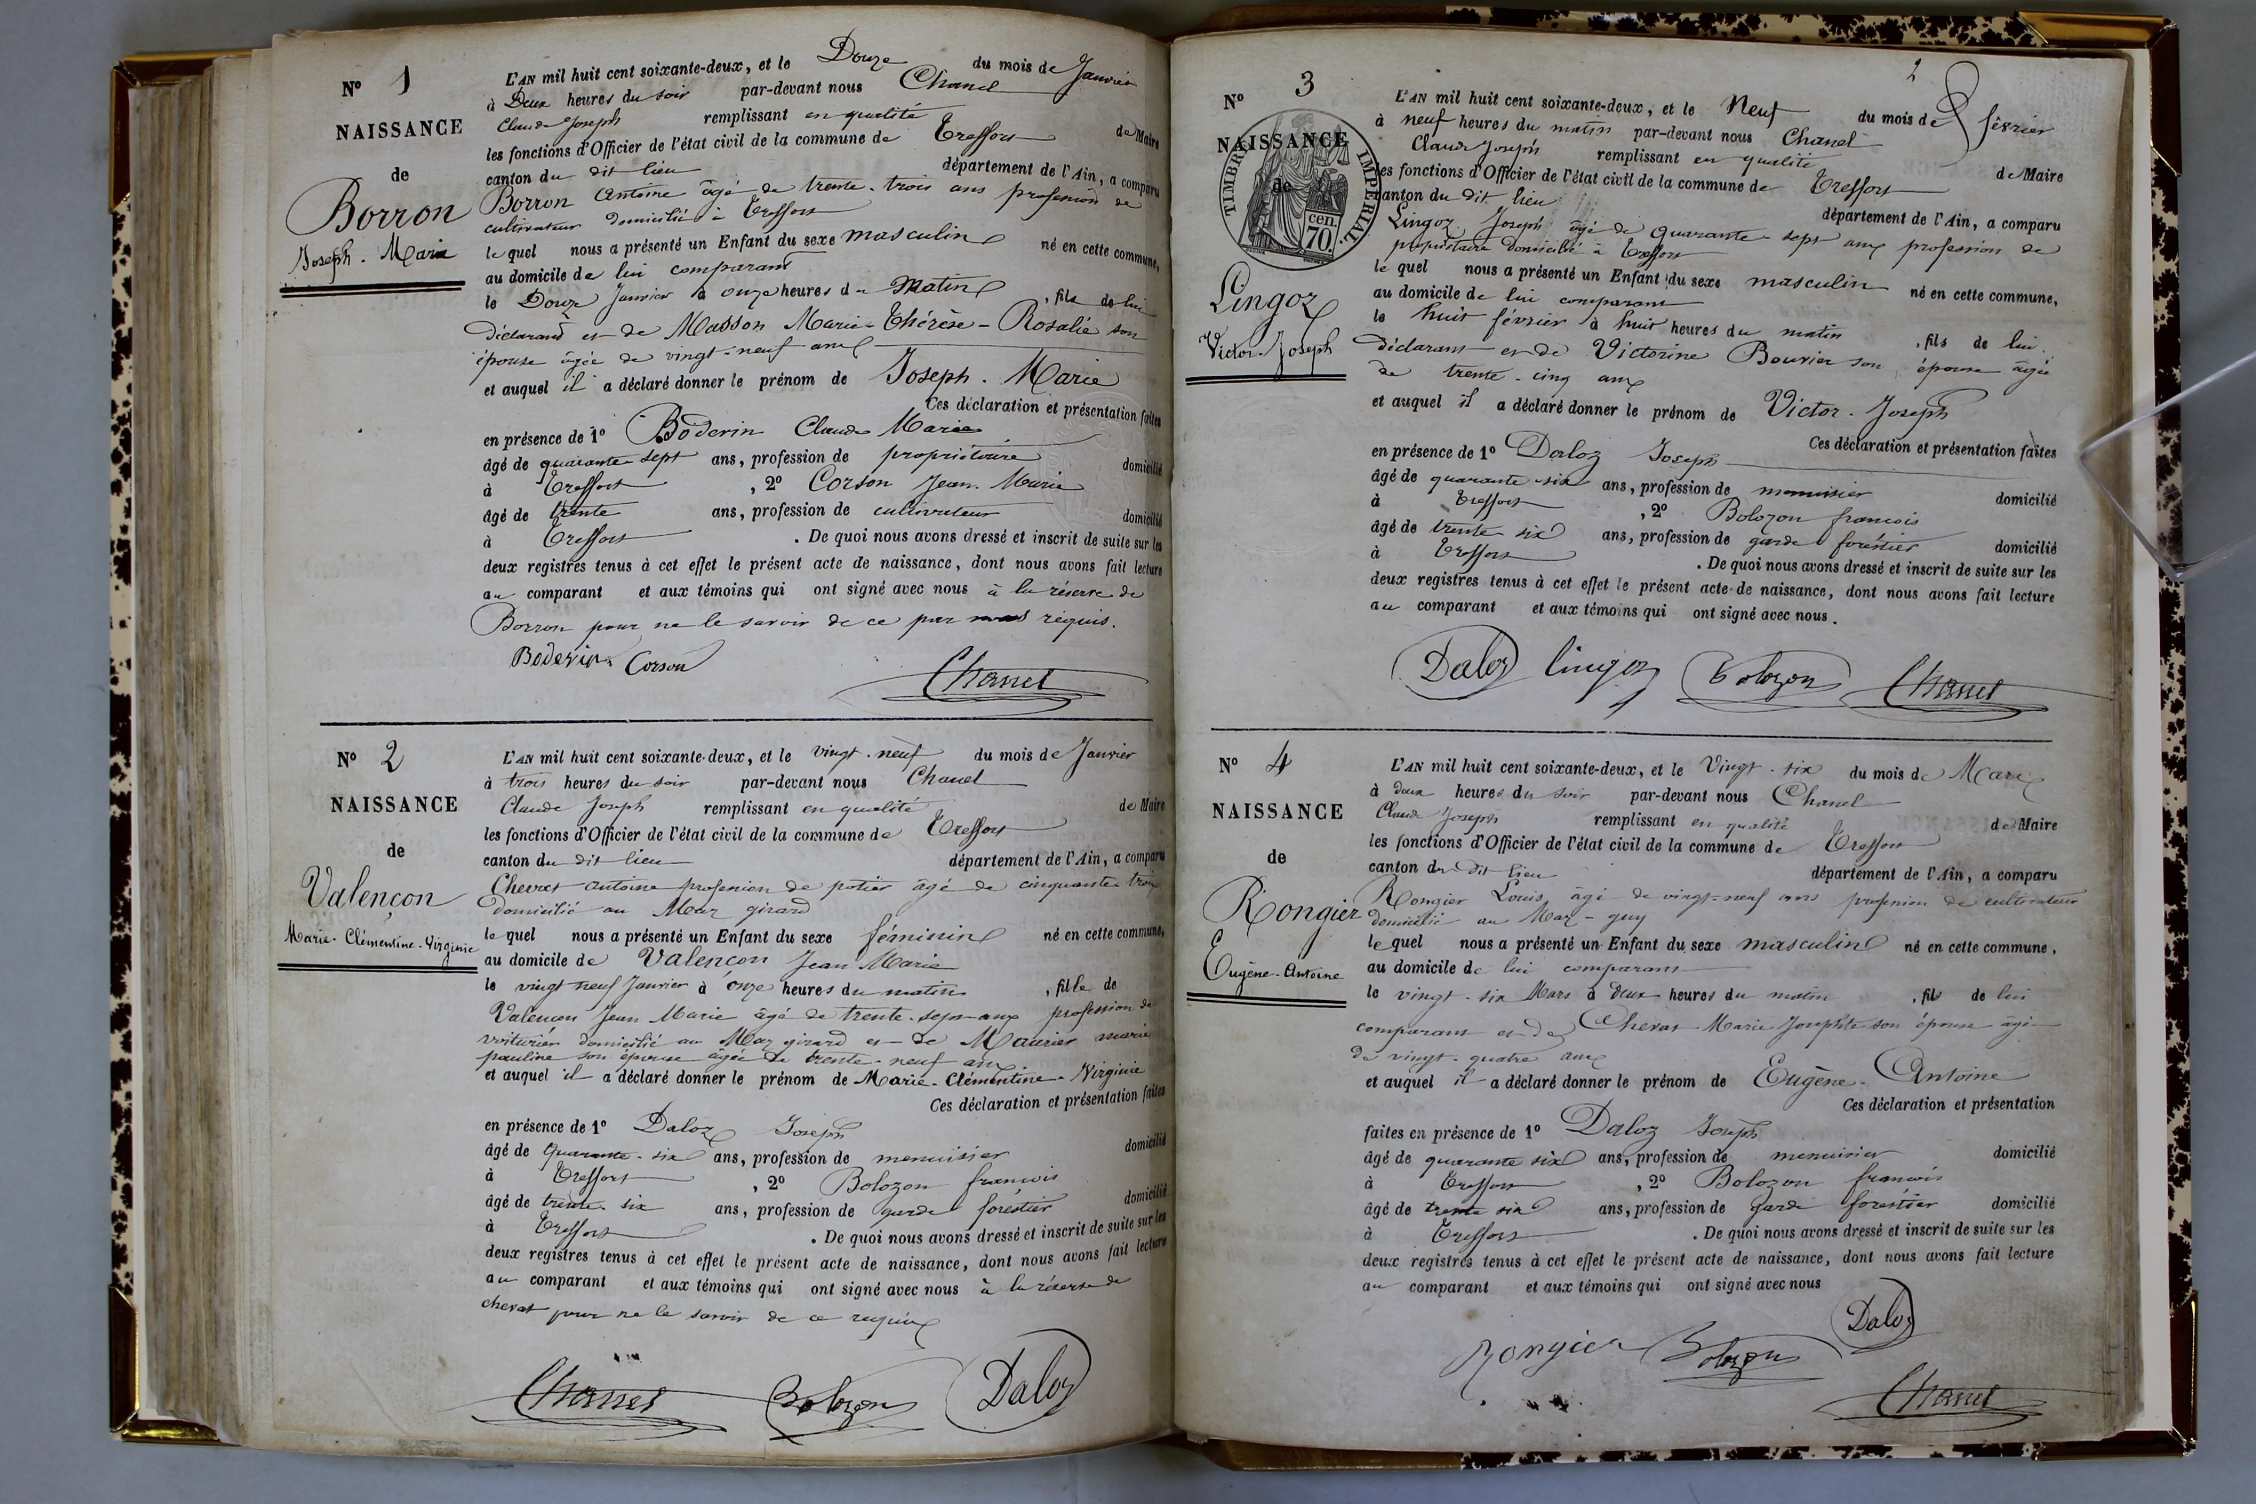 Nº 1
NAISSANCE
de
Borron
Joseph. Marie
L'AN mil huit cent soixante-deux, et le Douze du mois de Janvier
à Deux heures du soir par-devant nous Chanel
Claude Joseph remplissant en qualité de Maire
les fonctions d'Officier de l'état civil de la commune de Treffort
canton du dit lieu département de l'Ain, a comparu
Borron Antoine âgé de trente-trois ans profession de
cultivateur domicilié à Treffort
le quel nous a présenté un Enfant du sexe masculin né en cette commune,
au domicile de lui comparant
le Douze Janvier à onze heures du Matin, fils de lui
déclarant et de Masson Marie-Thérèse-Rosalie son
épouse âgée de vingt-neuf ans
et auquel il a déclaré donner le prénom de Joseph. Marie
Ces déclaration et présentation faites
en présence de 1º Boderin Claude Marie
âgé de quarante sept ans, profession de propriétaire domicilié
à Treffort, 2º Corson Jean-Marie
âgé de trente ans, profession de cultivateur domicilié
à Treffort. De quoi nous avons dressé et inscrit de suite sur les
deux registres tenus à cet effet le présent acte de naissance, dont nous avons fait lecture
au comparant et aux témoins qui ont signé avec nous à la réserve de
Borron pour ne le savoir de ce par nous requis.
Boderin Corson Chanel
Nº 2
NAISSANCE
de
Valençon
Marie-Clémentine-Virginie
L'AN mil huit cent soixante-deux, et le vingt-neuf du mois de Janvier
à trois heures du soir par-devant nous Chanel
Claude Joseph remplissant en qualité de Maire
les fonctions d'Officier de l'état civil de la commune de Treffort
canton du dit lieu département de l'Ain, a comparu
Chevrat antoine profession de potier âgé de cinquante trois
domicilié au Maz girard
le quel nous a présenté un Enfant du sexe féminin né en cette commune,
au domicile de Valençon Jean Marie
le vingt neuf Janvier à onze heures du matin, fille de
Valençon Jean Marie âgé de trente-sept ans profession de
voiturier domicilié au Maz girard et de Maurier marie
pauline son épouse âgée de trente-neuf ans
et auquel il a déclaré donner le prénom de Marie-Clémentine-Virginie
Ces déclaration et présentation faites
en présence de 1º Daloz Joseph
âgé de Quarante-six ans, profession de menuisier domicilié
à Treffort, 2º Bolozon francois
âgé de trente-six ans, profession de garde foréstier domicilié
à Treffort. De quoi nous avons dressé et inscrit de suite sur les
deux registres tenus à cet effet le présent acte de naissance, dont nous avons fait lecture
au comparant et aux témoins qui ont signé avec nous à la réserve de
chevat pour ne le savoir de ce requis
Chanel Bolozon Daloz
2
Nº 3
NAISSANCE
de
TIMBRE IMPÉRIAL.
cen. 70
Lingoz
Victor-Joseph
L'AN mil huit cent soixante-deux, et le Neuf du mois de février
à neuf heures du matin par-devant nous Chanel
Claude Joseph remplissant en qualité de Maire
les fonctions d'Officier de l'état civil de la commune de Treffort
canton du dit lieu département de l'Ain, a comparu
Lingoz Joseph âgé de quarante-sept ans profession de
propriétaire domicilié à Treffort
le quel nous a présenté un Enfant du sexe masculin né en cette commune,
au domicile de lui comparant
le huit février à huit heures du matin, fils de lui
déclarant et de Victorine Bouvier son épouse âgée
de trente-cinq ans
et auquel il a déclaré donner le prénom de Victor-Joseph
Ces déclaration et présentation faites
en présence de 1º Daloz Joseph
âgé de quarante six ans, profession de menuisier domicilié
à Treffort, 2º Bolozon francois
âgé de trente six ans, profession de garde foréstier domicilié
à Treffort. De quoi nous avons dressé et inscrit de suite sur les
deux registres tenus à cet effet le présent acte de naissance, dont nous avons fait lecture
au comparant et aux témoins qui ont signé avec nous.
Daloz Lingoz Bolozon Chanel
Nº 4
NAISSANCE
de
Rongier
Eugène-Antoine
L'AN mil huit cent soixante-deux, et le Vingt-six du mois de Mars
à deux heures du soir par-devant nous Chanel
Claude Joseph remplissant en qualité de Maire
les fonctions d'Officier de l'état civil de la commune de Treffort
canton du dit lieu département de l'Ain, a comparu
Rongier Louis âgé de vingt-neuf ans profession de cultivateur
domicilié au Maz-guy
le quel nous a présenté un Enfant du sexe masculin né en cette commune,
au domicile de lui comparant
le vingt-six Mars à deux heures du matin, fils de lui
comparant et de Chevat Marie Josephte son épouse âgée
de vingt-quatre ans
et auquel il a déclaré donner le prénom de Eugène-Antoine
Ces déclaration et présentation
faites en présence de 1º Daloz Joseph
âgé de quarante six ans, profession de menuisier domicilié
à Treffort, 2º Bolozon francois
âgé de trente six ans, profession de garde forestier domicilié
à Treffort. De quoi nous avons dressé et inscrit de suite sur les
deux registres tenus à cet effet le présent acte de naissance, dont nous avons fait lecture
au comparant et aux témoins qui ont signé avec nous
Daloz
Rongier Bolozon
Chanel